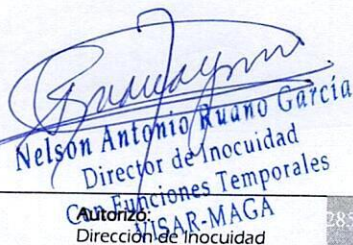 Nelson Antonio Ruano García
Director de Inocuidad
Con Funciones Temporales
VISAR-MAGA
Autorizó:
Dirección de Inocuidad
285